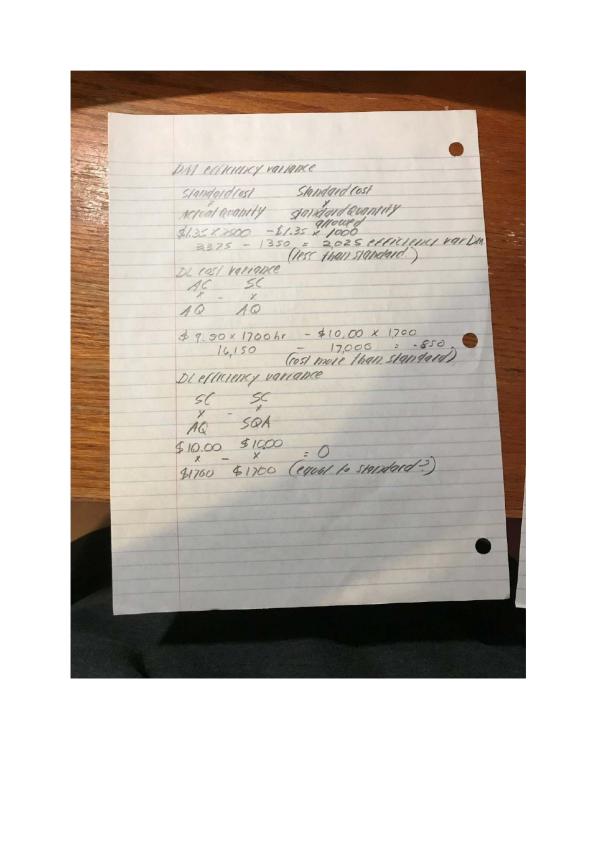 DM efficiency variance
Standard Cost Standard Cost
x x
Actual Quantity Standard Quantity
allowed
$1.35 x 2500 - $1.35 x 1000
3375 - 1350 = 2,025 efficiency var DM
(less than standard)
DL cost variance
AC SC
x - x
AQ AQ
$9.50 x 1700 hr - $10.00 x 1700
16,150 - 17,000 = -850.
(cost more than standard)
DL efficiency variance
SC SC
x - x
AQ SQA
$10.00 $10.00
x - x = 0
$1700 $1700 (equal to standard?)